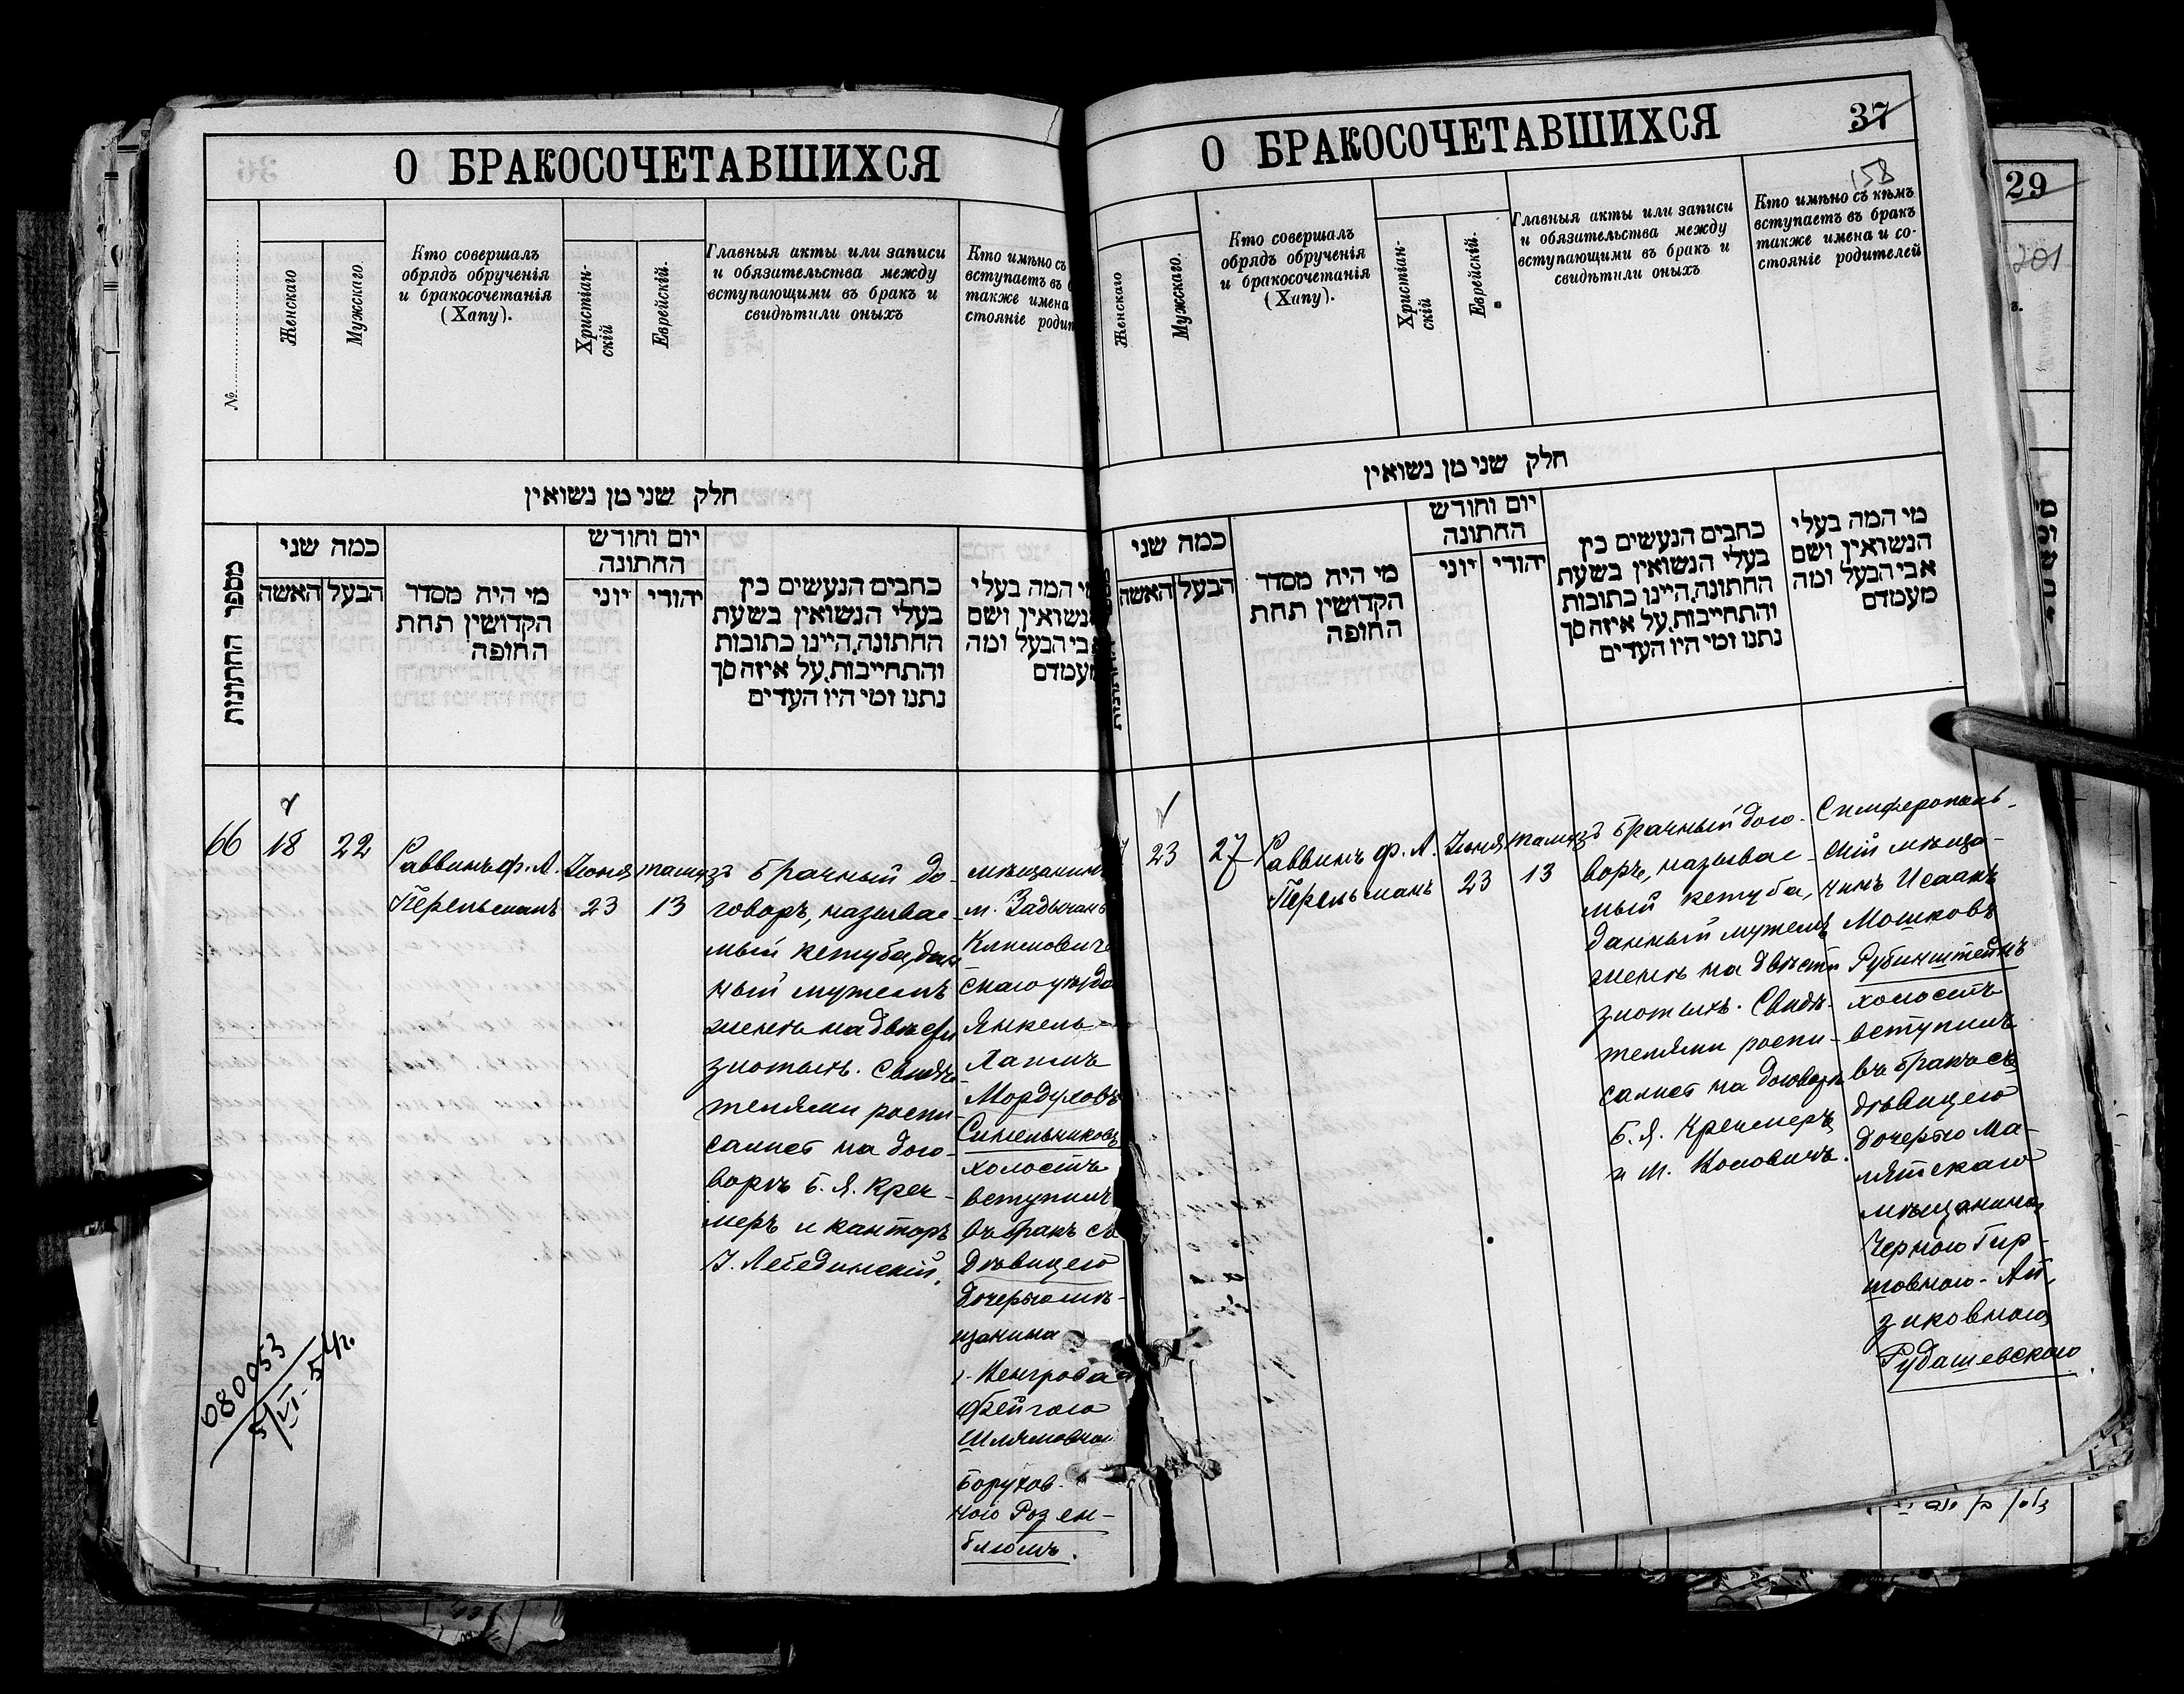 О БРАКОСОЧЕТАВШИХСЯ
№
Женскаго
Мужскаго.
Кто совершалъ
обрядъ обрученія
и бракосочетанія
(Хапу).
Христіан-
скій
Еврейскій.
Главныя акты или записи
и обязательства между
вступающими въ бракъ и
свидѣтили оныхъ
Кто имѣно съ
вступаетъ въ
также имена
стояніе
חלק שני מן נשואין
מספר החתונות
כמה שני
האשה
הבעל
מי היה מסדר
הקדושין תחת
החופה
יום וחודש
החתונה
יוני
יהודי
כתבים הנעשים בין
בעלי הנשואין בשעת
החתונה,היינו כתובות
והתחייבות,על איזה סך
נתנו ומי היו העדים
מי המה בעלי
הנשואין ושם
אבי הבעל ומה
מעמדם
66
18
22
Раввинъ Ф. А.
Перельманъ
Іюня
23
Тамузъ
13
Брачный до-
говоръ, называе-
мый кетуба, дан
ный мужемъ
женѣ на двѣсти
злотыхъ. Свидѣ-
телями распи-
сались на дого-
ворѣ Б. Я. Креч-
меръ и канторъ
І. Лебединскій.
мѣщанинъ
м.
Климович
скаго уѣзда
Янкель-
Хаимъ
Мордуховъ
Синельниковъ
холостъ
вступилъ
въ бракъ съ
дѣвицею
дочерью мѣ-
щанина
г. Венгрова
Фейгою
Шлемовною
Борухов-
ною Розен-
блюмъ.
080053
5/VI-54г.
О БРАКОСОЧЕТАВШИХСЯ
37
158
Женскаго
Мужскаго.
Кто совершалъ
обрядъ обрученія
и бракосочетанія
(Хапу).
Христіан-
скій
Еврейскій.
Главныя акты или записи
и обязательства между
вступающими въ бракъ и
свидѣтили оныхъ
Кто имѣно съ кѣмъ
вступаетъ въ бракъ
также имена и со-
стояніе родителей
חלק שני מן נשואין
כמה שני
האשה
הבעל
מי היה מסדר
הקדושין תחת
החופה
יום וחודש
החתונה
יוני
יהודי
כתבים הנעשים בין
בעלי הנשואין בשעת
החתונה,היינו כתובות
והתחייבות,על איזה סך
נתנו ומי היו העדים
מי המה בעלי
הנשואין ושם
אבי הבעל ומה
מעמדם
23
27
Раввинъ Ф. А.
Перельманъ
Іюня
23
Тамузъ
13
Брачный дого-
воръ, называе-
мый кетуба,
данный мужемъ
женѣ на двѣсти
злотыхъ. Свидѣ-
телями распи-
сались на договорѣ
Б. Я. Кречмеръ
и М.
Симферополь-
скій мѣща-
нинъ Исаакъ
Мошковъ
Рубинштейнъ
холостъ
вступилъ
въ бракъ съ
дѣвицею
дочерью
мѣщанина
Черною Гир-
шовною-Ай-
зиковною
Рудашевскою.
29
201